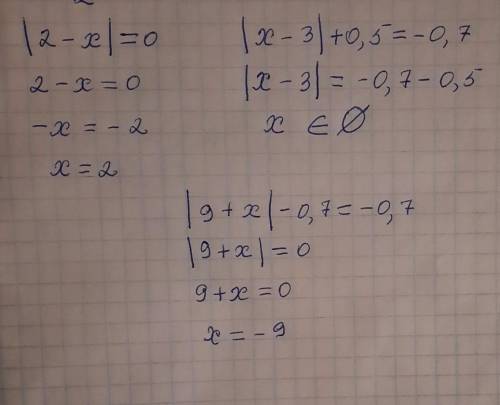 |2 - x| = 0
2 - x = 0
-x = -2
x = 2
|x - 3| + 0,5 = -0,7
|x - 3| = -0,7 - 0,5
x ∈ ∅
|9 + x| - 0,7 = -0,7
|9 + x| = 0
9 + x = 0
x = -9